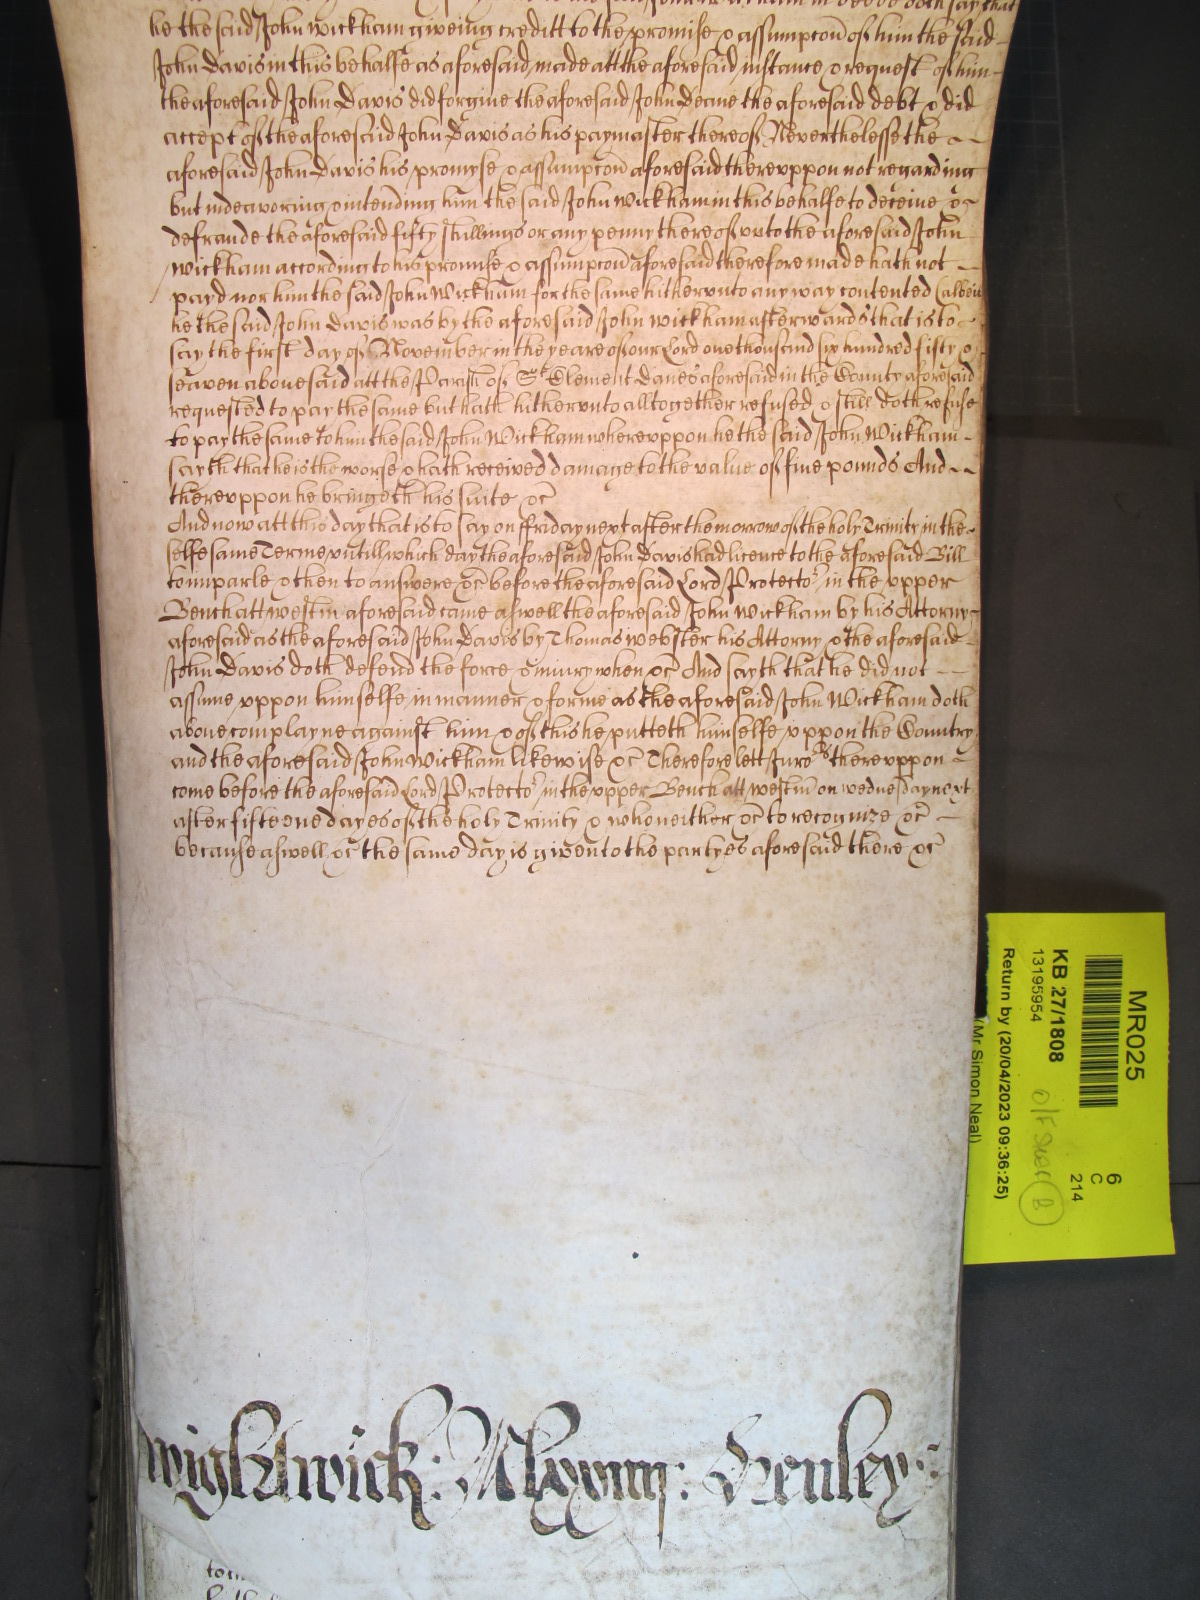 he the said John Wickham giveing creditt to the promise & assumpcon of him the said
John Davis in this behalfe as aforesaid made att the aforesaid instance & request of him
the aforesaid John Davis did forgive the aforesaid John Deane the aforesaid debt & did
accept of the aforesaid John Davis as his paymaster thereof Neverthelesse the
aforesaid John Davis his promyse & assumpcon aforesaid thereuppon not regarding
but indeavoring & intending him the said John Wickham in this behalfe to deceive &
defraude the aforesaid fifty shillings or any penny thereof unto the aforesaid John
Wickham according to his promise & assumpcon aforesaid therefore made hath not
payd nor him the said John Wickham for the same hitherunto any way contented (albeit
he the said John Davis was by the aforesaid John Wickham afterwards that is to
say the first day of November in the yeare of our Lord one thousand six hundred fifty &
seaven abovesaid att the Parish of St Clement Danes aforesaid in the County aforesaid
requested to pay the same but hath hitherunto alltogether refused & still doth refuse
to pay the same to him the said John Wickham whereuppon he the said John Wickham
sayth that he is the worse & hath received damage to the value of five pounds And
thereuppon he bringeth his suite &c
And now att this day that is to say on ffriday next after the morrow of the holy Trinity in the
selfe same Terme untill which day the aforesaid John Davis had licence to the aforesaid Bill
to imparle & then to answere &c before the aforesaid Lord Protector in the upper
Bench att Westm aforesaid came aswell the aforesaid John Wickham by his Attorny
aforesaid as the aforesaid John Davis by Thomas Webster his Attorny & the aforesaid
John Davis doth defend the force & iniury when &c And sayth that he did not
assume uppon himselfe in manner & forme as the aforesaid John Wickham doth
above complayne against him & of this he putteth himselfe uppon the Country
and the aforesaid John Wickham likewise &c Therefore lett Jurors thereuppon
come before the aforesaid Lord Protector in the upper Bench att Westm on Wednesday next
after fifteene dayes of the holy Trinity & who neither &c to recognize &c
because aswell &c the same day is given to the partyes aforesaid there &c
Wightwick: Mlxxviij: Henley:
MR025
KB 27/1808
13195954
Return by (20/04/2023 09:36:25)
(Mr Simon Neal)
6
C
214
B